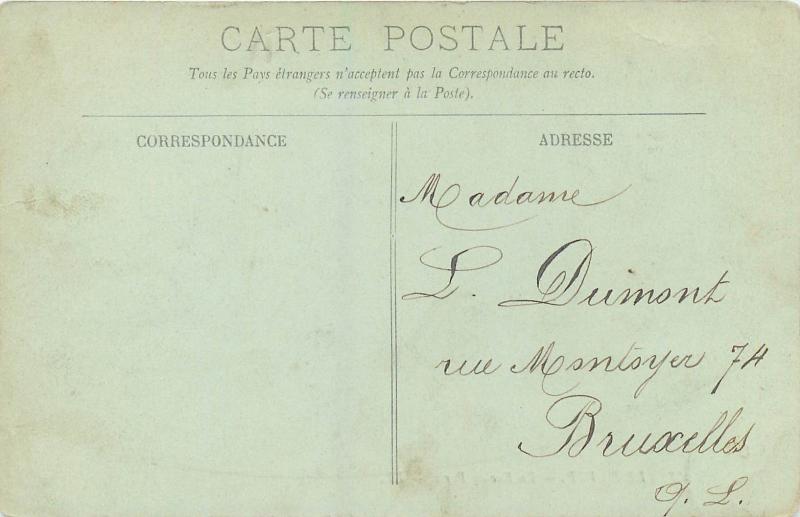 CARTE POSTALE
Tous les Pays étrangers n'acceptent pas la Correspondance au recto.
(Se renseigner à la Poste).
CORRESPONDANCE
ADRESSE
Madame
L. Dumont
rue Montoyer 74
Bruxelles
Q. L.